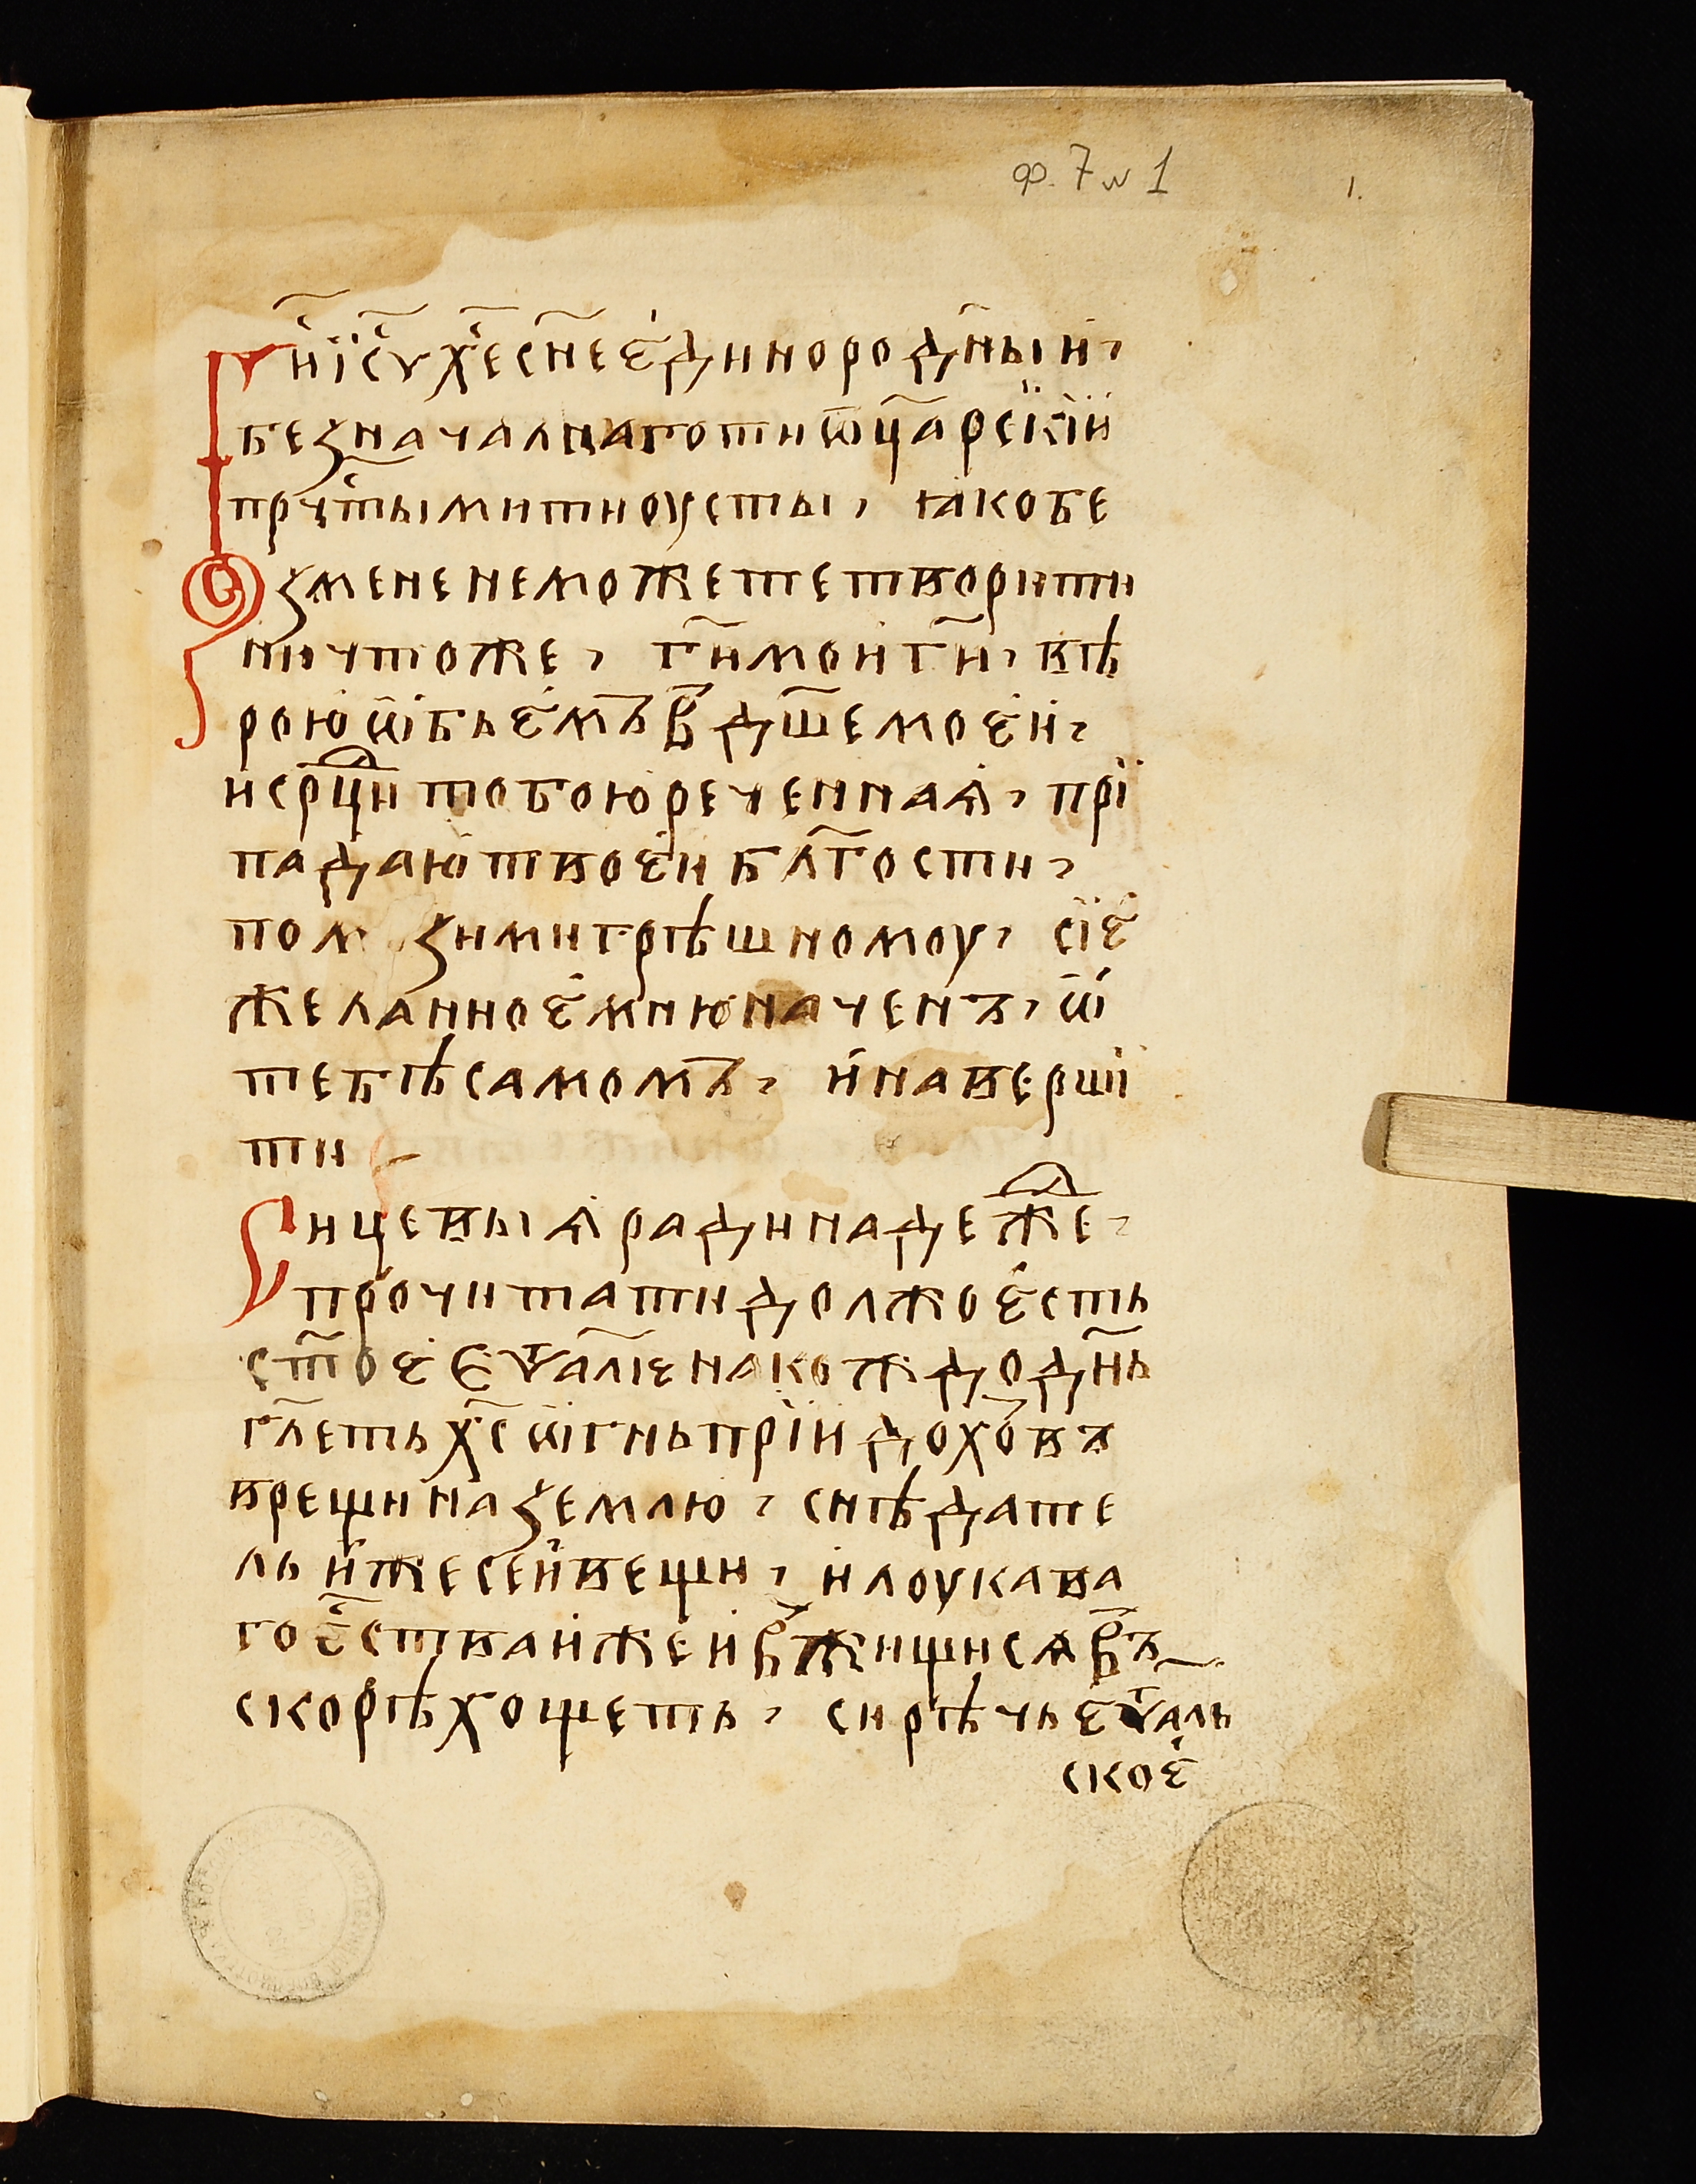 ф. 7 № 1
1.
Гн҃и і҆с҃у х҃е сн҃е є҆динородн҃ыи,
безначалнаго ти ѿц҃а рс҃кїи
прчⷭ҇тыми ти оусты, ꙗко бе
з мене не можете творити
ничтоже, гн҃и мои гн҃и, вѣ
рою ѡ҆бьє҆мъ в дш҃е моєи,
и срⷣци тобою реченнаѧ, прї
падаю твоєи бл҃гости,
пом зи ми грѣшномоу, сїє
желанноє мню наченъ, ѿ
тебѣ самомъ, и наверши
ти
Сицевыѧ ради надеⷤже,
прочитати должо єсть
ст҃оє Єѵⷢ҇алїє на кождо дн҃ь
гл҃еть хс҃ ѡ҆гнь прїидохѡвъ
врещи на землю, снѣдате
ль иже сеи вещи, и лоукава
го єⷭ҇ства иже и вжищисѧ въ
скорѣ хощеть, си рѣчь єѵⷢ҇аль
скоє